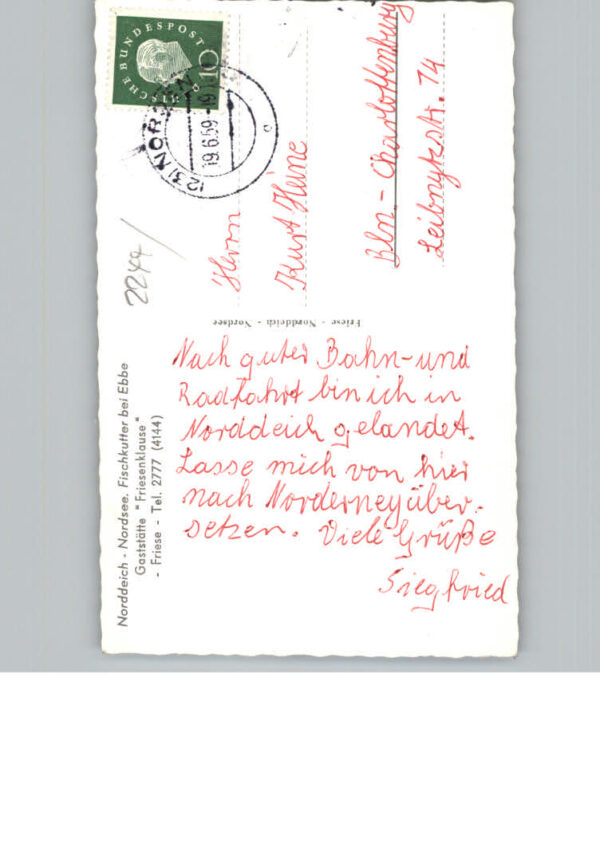 Norddeich - Nordsee. Fischkutter bei Ebbe
Gaststätte "Friesenklause"
- Friese - Tel. 2777 (4144)
Friese - Norddeich - Nordsee
Nach guter Bahn- und
Radfahrt bin ich in
Norddeich gelandet.
Lasse mich von hier
nach Norderney über-
setzen. Viele Grüße
Siegfried
DEUTSCHE BUNDESPOST
10
(23) NORDEN
19.6.59-19
2244/
Herrn
Kurt Heine
Bln.-Charlottenburg
Leibnytzstr. 74